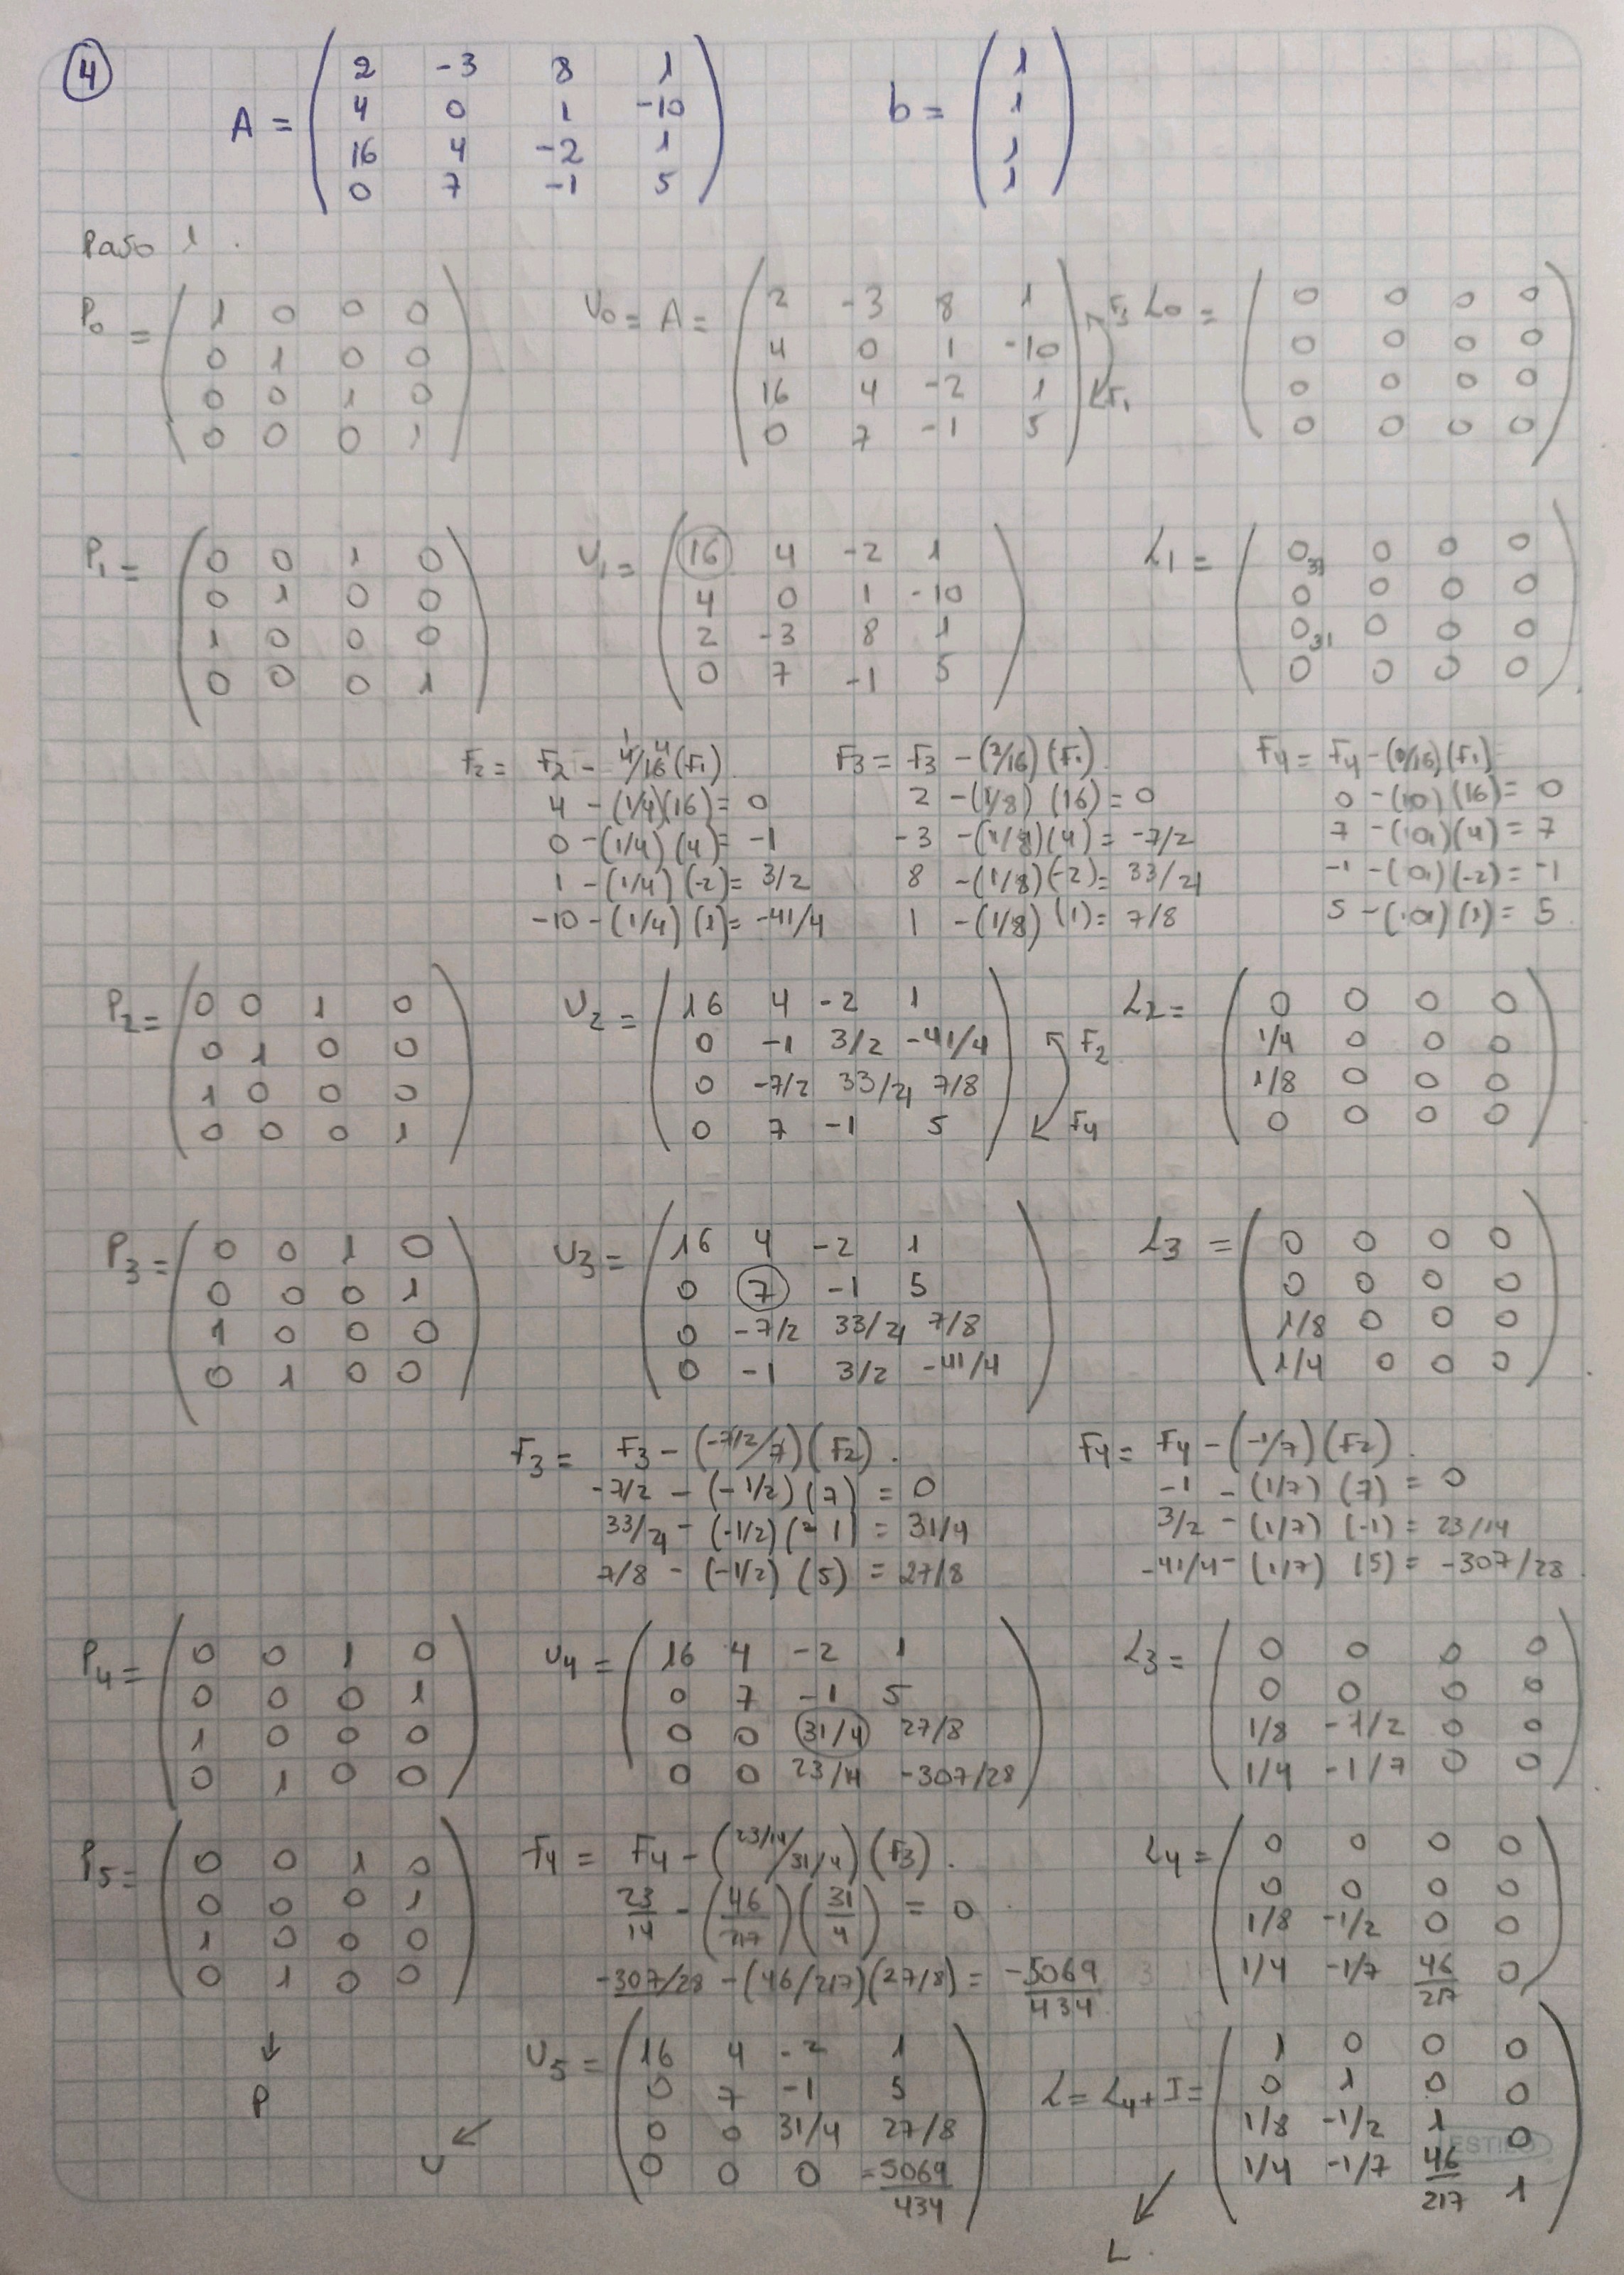 4
A = ( 2 -3 8 1
4 0 1 -10
16 4 -2 1
0 7 -1 5 )
b = ( 1
1
1
1 )
Paso 1.
P0 = ( 1 0 0 0
0 1 0 0
0 0 1 0
0 0 0 1 )
U0 = A = ( 2 -3 8 1
4 0 1 -10
16 4 -2 1
0 7 -1 5 ) F3 F1
L0 = ( 0 0 0 0
0 0 0 0
0 0 0 0
0 0 0 0 )
P1 = ( 0 0 1 0
0 1 0 0
1 0 0 0
0 0 0 1 )
U1 = ( 16 4 -2 1
4 0 1 -10
2 -3 8 1
0 7 -1 5 )
L1 = ( 0 31 0 0 0
0 0 0 0
0 31 0 0 0
0 0 0 0 )
F2 = F2 - 4/16 1 4 (F1)
4 - (1/4)(16) = 0
0 - (1/4)(4) = -1
1 - (1/4)(-2) = 3/2
-10 - (1/4)(1) = -41/4
F3 = F3 - (2/16)(F1).
2 - (1/8)(16) = 0
-3 - (1/8)(4) = -7/2
8 - (1/8)(-2) = 33/4
1 - (1/8)(1) = 7/8
F4 = F4 - (0/16)(F1) =
0 - (0)(16) = 0
7 - (0)(4) = 7
-1 - (0)(-2) = -1
5 - (0)(1) = 5
P2 = ( 0 0 1 0
0 1 0 0
1 0 0 0
0 0 0 1 )
U2 = ( 16 4 -2 1
0 -1 3/2 -41/4
0 -7/2 33/4 7/8
0 7 -1 5 ) F2 F4
L2 = ( 0 0 0 0
1/4 0 0 0
1/8 0 0 0
0 0 0 0 )
P3 = ( 0 0 1 0
0 0 0 1
1 0 0 0
0 1 0 0 )
U3 = ( 16 4 -2 1
0 7 -1 5
0 -7/2 33/4 7/8
0 -1 3/2 -41/4 )
L3 = ( 0 0 0 0
0 0 0 0
1/8 0 0 0
1/4 0 0 0 )
F3 = F3 - (-7/2/7)(F2).
-7/2 - (-1/2)(7) = 0
33/4 - (-1/2)(-1) = 31/4
7/8 - (-1/2)(5) = 27/8
F4 = F4 - (-1/7)(F2).
-1 - (1/7)(7) = 0
3/2 - (1/7)(-1) = 23/14
-41/4 - (1/7)(5) = -307/28
P4 = ( 0 0 1 0
0 0 0 1
1 0 0 0
0 1 0 0 )
U4 = ( 16 4 -2 1
0 7 -1 5
0 0 31/4 27/8
0 0 23/14 -307/28 )
L3 = ( 0 0 0 0
0 0 0 0
1/8 -1/2 0 0
1/4 -1/7 0 0 )
P5 = ( 0 0 1 0
0 0 0 1
1 0 0 0
0 1 0 0 )
F4 = F4 - (23/14/31/4)(F3).
23/14 - (46/217)(31/4) = 0
-307/28 - (46/217)(27/8) = -5069/434
L4 = ( 0 0 0 0
0 0 0 0
1/8 -1/2 0 0
1/4 -1/7 46/217 0 )
↓
P
U5 = ( 16 4 -2 1
0 7 -1 5
0 0 31/4 27/8
0 0 0 -5069/434 )
U
L = L4 + I = ( 1 0 0 0
0 1 0 0
1/8 -1/2 1 0
1/4 -1/7 46/217 1 )
L.